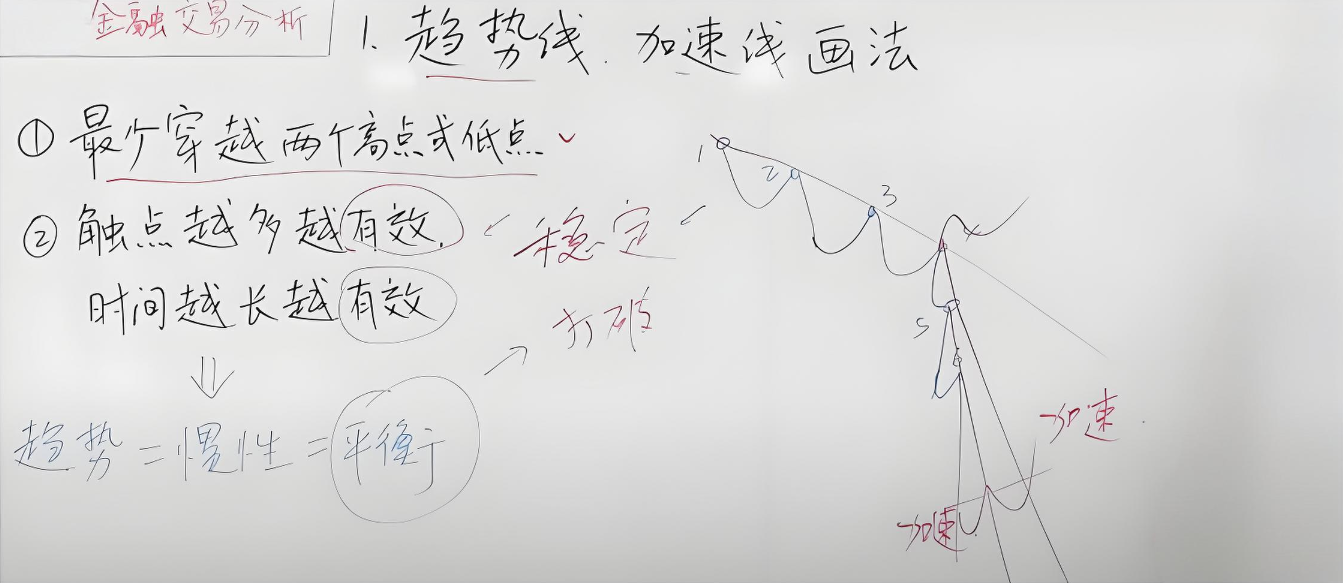 金融交易分析
1. 趋势线. 加速线画法
① 最少穿越两个高点或低点
② 触点越多越有效.
稳定
时间越长越有效
打破
趋势=惯性=平衡
1
2
3
5
加速
加速